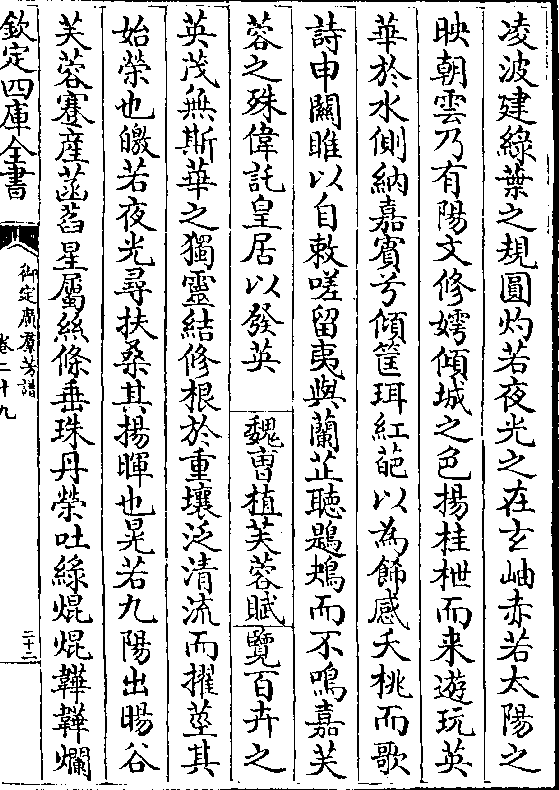 凌波建綠葉之規圓灼若夜光之在玄岫赤若太陽之
映朝雲乃有陽文修嫮傾城之色揚桂枻而来遊玩英
華於水側納嘉賓兮傾筐珥紅葩以為飾感夭桃而歌
詩申關雎以自敕嗟留夷與蘭芷聽鶗鴂而不鳴嘉芙
蓉之殊偉託皇居以發英 魏曹植芙蓉賦覽百卉之
英茂無斯華之獨靈結修根於重壤泛清流而擢莖其
始榮也皦若夜光尋扶桑其揚暉也晃若九陽出暘谷
芙蓉蹇產菡萏星屬絲條垂珠丹榮吐綠焜焜韡韡爛
欽定四庫全書
御定廣羣芳譜
卷二十九
二十二